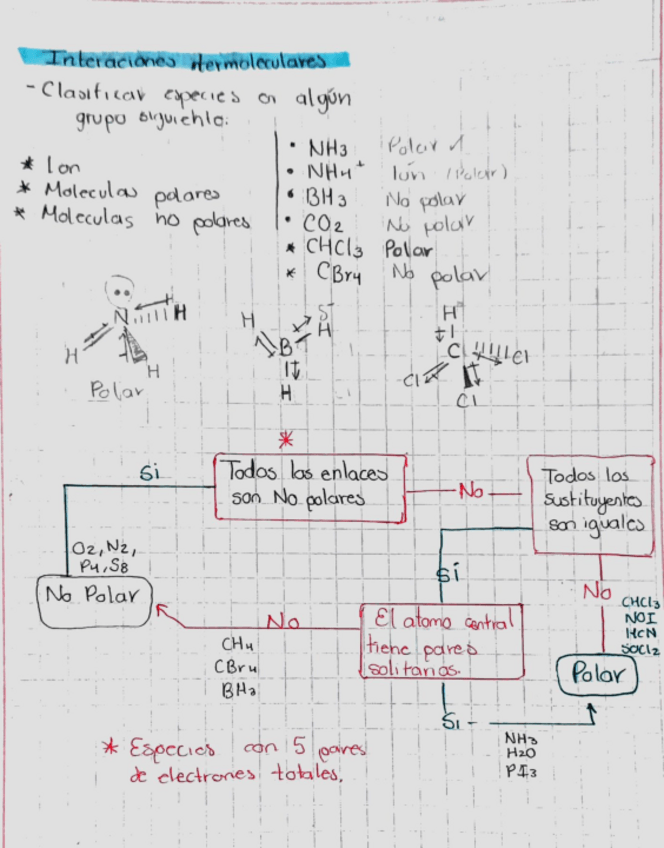 Interaciones ntermoleculares
- Clasificar especies en algún
grupo siguiente:
* Ion
* Moleculas polares
* Moleculas no polares
• NH3 Polar
• NH4+ Ión (Polar)
• BH3 No polar
• CO2 No polar
* CHCl3 Polar
* CBr4 No polar
N H
H H
Polar
H
B H
H
H
C Cl
Cl
Cl
*
Todos los enlaces
son No polares
Si
No
Todos los
sustituyentes
son iguales
O2, N2,
P4, S8
No Polar
Sí
No
CHCl3
NOI
HCN
SOCl2
Polar
El atomo central
tiene pares
solitarios.
No
CH4
CBr4
BH3
Si -
NH3
H2O
PI3
* Especies con 5 pares
de electrones totales.